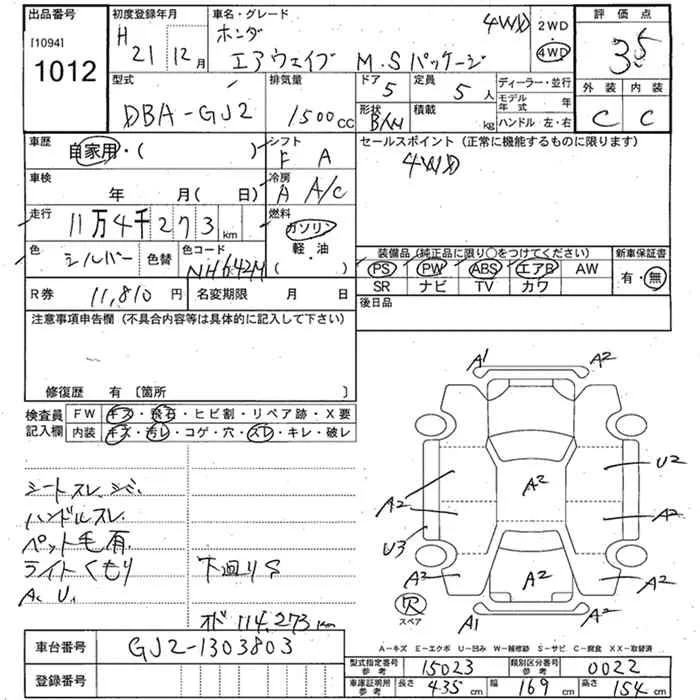 出品番号 初度登録年月 車名・グレード 評価点
[1094] 1012
H 21 12月
ホンダ 4WD 2WD
エアウェイブ M.Sパッケージ 4WD
3.5
外装 内装
C C
型式 排気量 ドア 定員 ディーラー・並行
DBA-GJ2 1500cc 5 5人 モデル年式 年
形状 積載 kg ハンドル 左・右
車歴 自家用・( ) シフト F A
セールスポイント(正常に機能するものに限ります)
4WD
車検 年 月( 日) 冷房 A A/C
走行 11万4千273km 燃料 ガソリン 軽・油 ( )
色 シルバー 色替 色コード NH642M
装備品(純正品に限り○をつけてください) 新車保証書
PS PW ABS エアB AW 有・無
SR ナビ TV カワ
R券 11,810円 名変期限 月 日 後日品
注意事項申告欄(不具合内容等は具体的に記入して下さい)
修復歴 有 〔箇所 〕
検査員記入欄 FW キズ・飛石・ヒビ割・リペア跡・X要
内装 キズ・汚レ・コゲ・穴・スレ・キレ・破レ
シートスレ シミ.
ハンドルスレ.
ペット毛有
ライトくもり 下回りS
A. U.
オド 114,273km
A1 A2
A2 U2
A2 A2
U3
A2 A2 A2
A1 A2
穴 スペア
A−キズ E−エクボ U−凹み W−補修跡 S−サビ C−腐食 XX−取替済
車台番号 GJ2-1303803
登録番号
型式指定番号 参考 15023 類別区分番号 参考 0022
車庫証明用 参考 長さ 435cm 幅 169cm 高さ 154cm